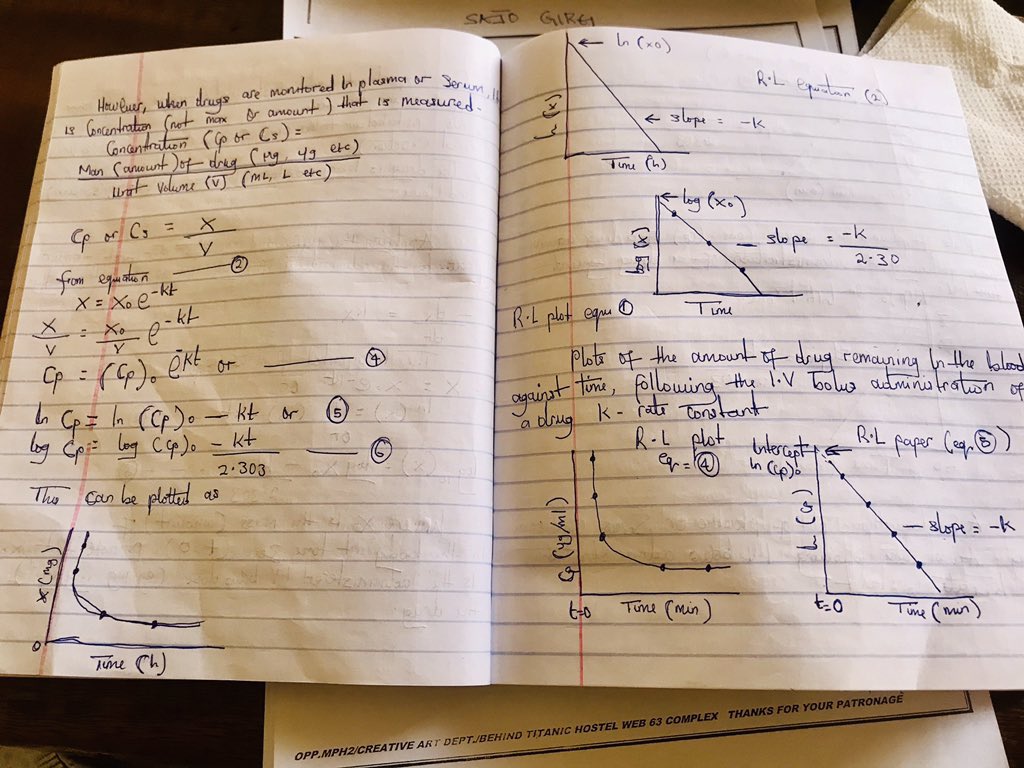 SAJO GIRGI
However, when drugs are monitored in plasma or serum, it
is Concentration (not max or amount) that is measured.
Concentration (Cp or Cs) =
Mass (amount) of drug (Mg, µg etc)
Unit Volume (V) (ML, L etc)
Cp or Cs = X
V
from equation ②
X = X₀ e^-kt
X/V = X₀/V e^-kt
Cp = (Cp)₀ e^-kt or ④
ln Cp = ln (Cp)₀ - kt or ⑤
log Cp = log (Cp)₀ - kt/2.303 ⑥
This can be plotted as
X (mg)
0
Time (h)
ln (x0)
R.L equation (2)
ln (x)
slope = -k
Time (h)
log (x0)
log (x)
slope = -k/2.30
Time
R.L plot eqn ①
Plots of the amount of drug remaining in the blood
against time, following the I.V bolus administration of
a drug K - rate constant
R.L plot
eq = ④
Cp (µg/ml)
t=0
Time (min)
R.L paper (eq, ⑤)
Intercept
ln (Cp)₀
slope = -k
t=0
Time (min)
OPP.MPH2/CREATIVE ART DEPT./BEHIND TITANIC HOSTEL WEB 63 COMPLEX THANKS FOR YOUR PATRONAGE